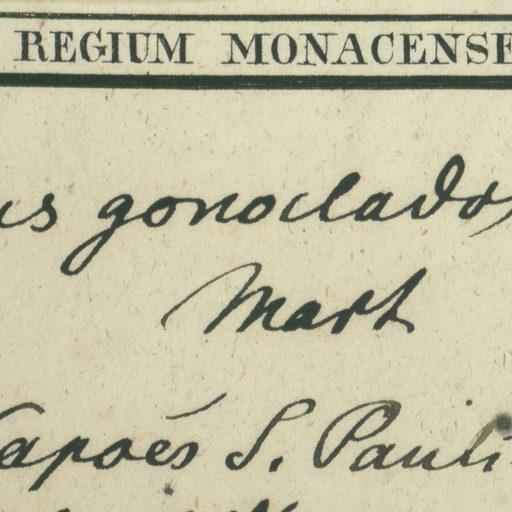 REGIUM MONACENSE
us gonoclados
Mart
Capoés S. Pauli